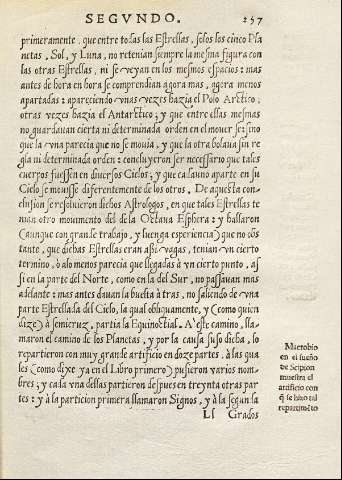 SEGVNDO. 257
primeramente, que entre todas las Estrellas, solos los cinco Pla
netas, Sol, y Luna, no retenian siempre la mesma figura con
las otras Estrellas, ni se veyan en los mesmos espacios: mas
antes de hora en hora se comprendian agora mas, agora menos
apartadas: apareciendo vnas vezes hazia el Polo Arctico,
otras vezes hazia el Antarctico; y que entre ellas mesmas
no guardauan cierta ni determinada orden en el mouer se: sino
que la vna parecia que no se mouia, y que la otra bolaua sin re
gla ni determinada orden: concluyeron ser necessario que tales
cuerpos fuessen en diuersos Cielos; y que cada uno aparte en su
Cielo se mouisse diferentemente de los otros. De aquesta con-
clusion se resoluieron dichos Astrologos, en que tales Estrellas te
nian otro mouimento del de la Octaua Esphera: y hallaron
(aunque con grande trabajo, y luenga esperiencia) que no obs
tante, que dichas Estrellas eran assi vagas, tenian vn cierto
termino, ò alo menos parecia que llegadas à vn cierto punto, as
si en la parte del Norte, como en la del Sur, no passauan mas
adelante: mas antes dauan la buelta à tras, no saliendo de vna
parte Estrellada del Cielo, la qual obliquamente, y (como quien
dize) à semicruz, partia la Equinoctial. A'este camino, lla-
maron el camino de los Planetas, y por la causa suso dicha, lo
repartieron con muy grande artificio en doze partes, à las qua
les (como dixe ya en el Libro primero) pusieron varios nom-
bres; y cada vna dellas partieron despues en treynta otras par
tes: y à la particion primera llamaron Signos, y à la segunda
Ll Grados
Macrobio
en el sueño
de Scipion
muestra el
artificio con
q̃ se hizo tal
repartimẽto